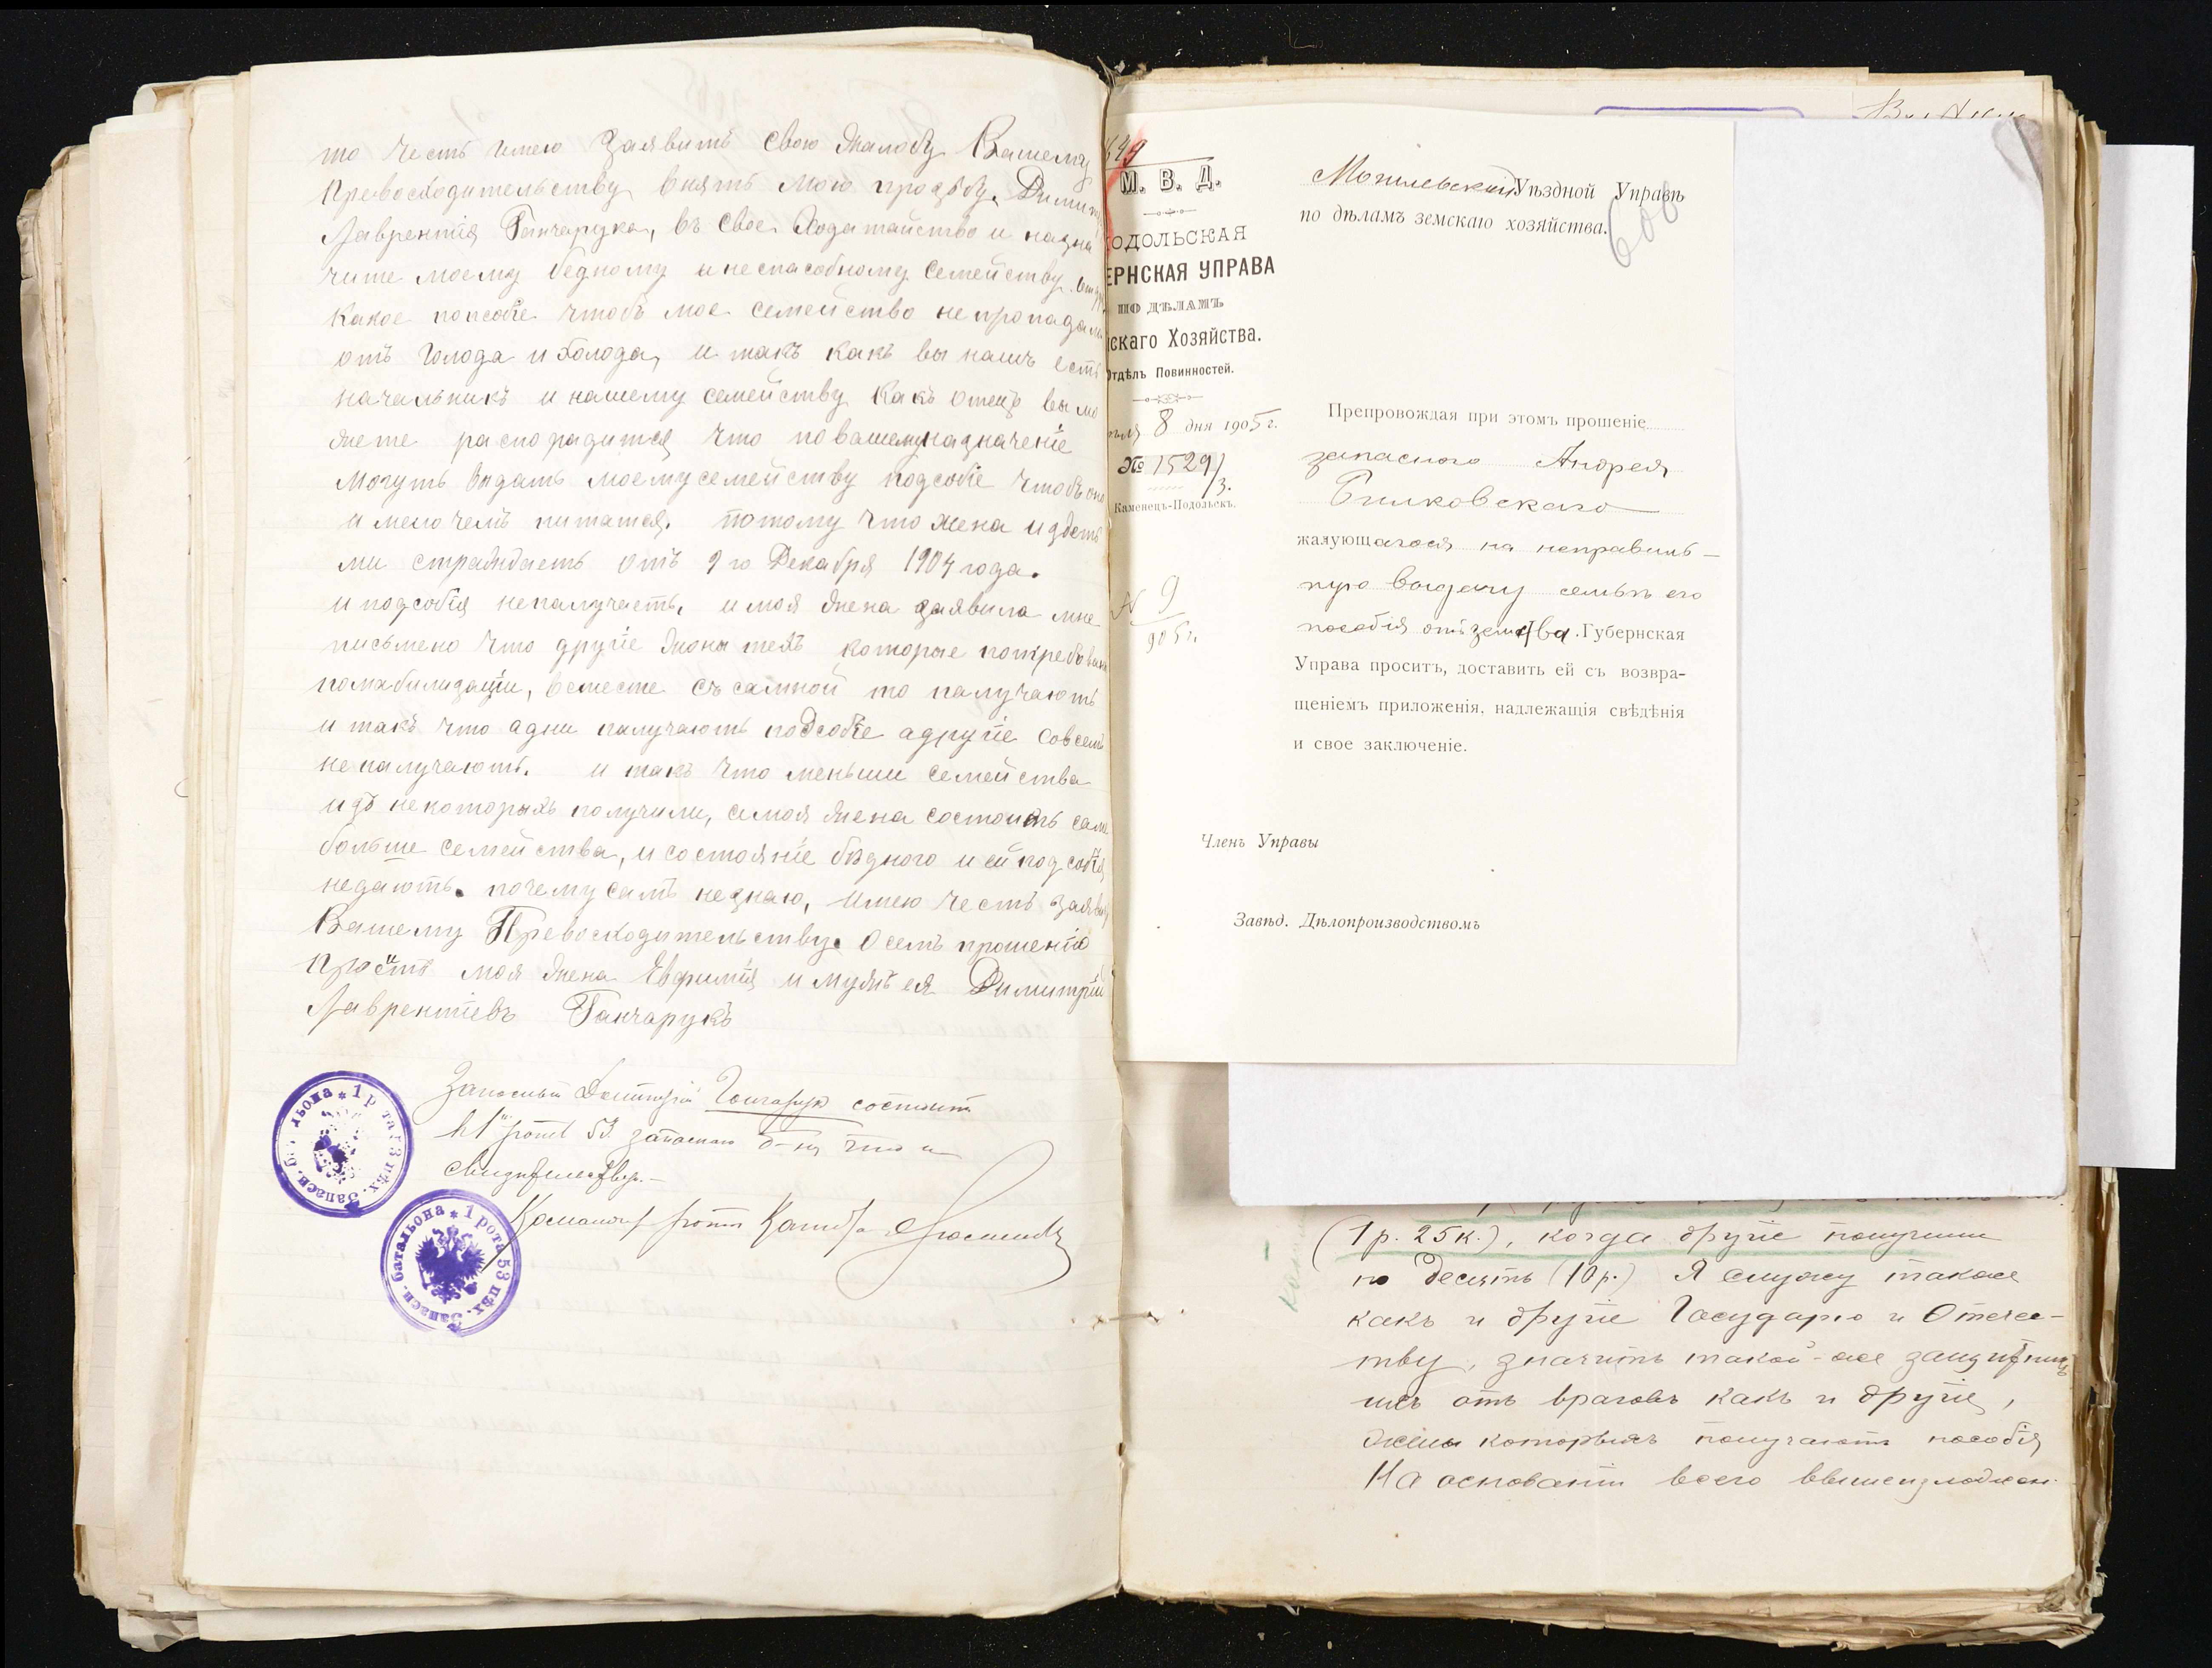 то честь имею заявить свою жалобу Вашему
Превосходительству внять мою прозьбу, Димит
Лаврентія Ганчарука, въ свое Ходатайство и назна
чите моему бедному и неспасобному семейству
какое попсобіе чтобъ мое семейство непропадало
отъ Голода и Холода, и такъ какъ вы нашъ есть
начальникъ и нашему семейству какъ отецъ вы мо
жете распорадится что повашемуназначеніе
могуть выдать моемусемейству подсобіе чтобъ оно
имело чемъ питатся, потому что жена издеть
ми страждаеть отъ 9 го Декабря 1904 года.
иподсобія непалучаеть, имоя жена заявила мне
письмено что другіе жоны техъ которые потребованы
помабилизаціи, вместе съ самной то палучають
и такъ что адни палучають поДсобіе адругіе совсемъ
непалучають. и такъ что меньши семейства
изъ некоторыхъ получили, амоя жена состоить сама
больше семейства, и состояніе бѣдного и ей подсобія
недають. почему самъ незнаю, имею честь заявить
Вашему Превосходительству. Осемъ прошенію
Просить моя жена Евфимія и мужъ ея Димитрій
Лаврентіевъ Ганчарукъ
Запасный Димитрій Гончарук состоит
в 1й роте 53 запасного б-на что и
свидетельствую.-
Командир роты Капит.
1 рота 53 пѣх. Запасн. батальона
1 рота 53 пѣх. Запасн. батальона
649
М. В. Д.
ОДОЛЬСКАЯ
ЕРНСКАЯ УПРАВА
ПО ДѢЛАМЪ
скаго Хозяйства.
Отдѣлъ Повинностей.
8 дня 1905 г.
№ 15291/3.
Каменецъ-Подольскъ.
№ 9
905 г.
Могилевской Уѣздной Управѣ
по дѣламъ земскаго хозяйства.
600
Препровождая при этомъ прошеніе
запасного Андрея
жалующагося на неправиль-
ную выдачу семьѣ его
пособія отъ земства. Губернская
Управа проситъ, доставить ей съ возвра-
щеніемъ приложенія, надлежащія свѣдѣнія
и свое заключеніе.
Членъ Управы
Завѣд. Дѣлопроизводствомъ
(1 р. 25 к.), когда другіе получили
по десять (10 р.) Я служу такоже
какъ и другіе Государю и Отече-
тву, значитъ такой-же
отъ враговъ какъ и другіе,
жены которыхъ получаютъ пособія
На основаніи всего вышеизложен-